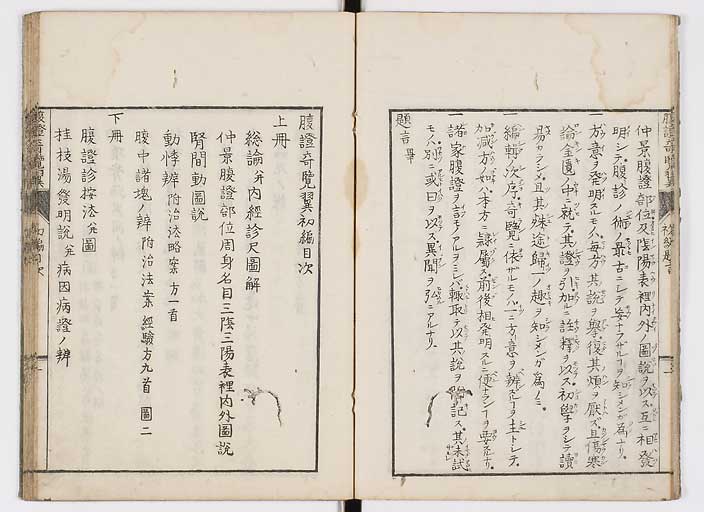 仲景腹證部位及陰陽表裡内外ノ圖說ヲ以ス互ニ相發
明シテ腹診ノ術ノ最古ニシテ妄ナラザルヿヲ知シメンガ為ナリ
一方意ヲ発明スルモノハ毎方其說ヲ擧復其煩ヲ厭ズ且傷寒
論金匱ノ中ニ就テ其證ヲ引加ニ註釋ヲ以ス初學ヲシテ讀
易カラシメ且其殊途歸一ノ趣ヲ知シメンガ為ノミ
一編輯次序奇覽ニ依ザルモノハ一ニ方意ヲ辨ズルヿヲ主トシテ
加減方如ハ本方ニ隷屬ス前後相発明スルニ便ナランヿヲ要ナリ
一諸家腹證ヲ言モノアルヲミレバ輙取テ以其說ヲ記ス其未試
モノハ別ニ或曰ヲ以ス異聞ヲ弘ニアルナリ
題言畢
腹證奇覽翼初編目次
上冊
總論 并内經診尺圖解
仲景腹證部位周身名目三陰三陽表裡内外圖說
腎間動圖說
動悸辨 附治法略案 方一首
腹中諸塊ノ辨 附治法案 經驗方九首 圖二
下冊
腹證診按法 并圖
桂枝湯發明說 并病因病證ノ辨